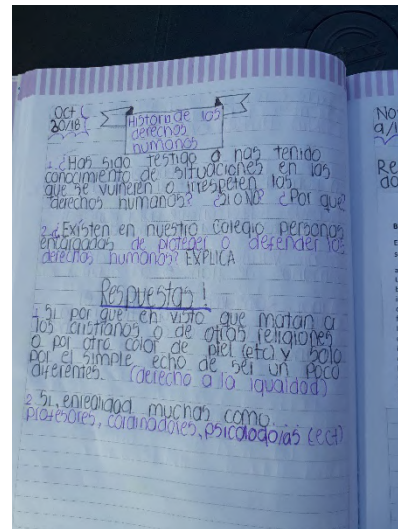 Oct
30/18
Historia de los
derechos
humanos
1. ¿Has sido testigo o has tenido
conocimiento de situaciones en las
que se vulneren o irrespeten los
derechos humanos? ¿SI o NO? ¿Por qué?
2. ¿Existen en nuestro colegio personas
encargadas de proteger o defender los
derechos humanos? EXPLICA
Respuestas!
1. Si, por que, eh visto que matan a
los cristianos o de otras religiones
o por otro color de piel (etc) y solo
por el simple echo de ser un poco
diferentes. (derecho a la igualdad)
2. Si, enrealidad muchas como...
profesores, cordinadores, psicologas (ect)
No
9/1
Re